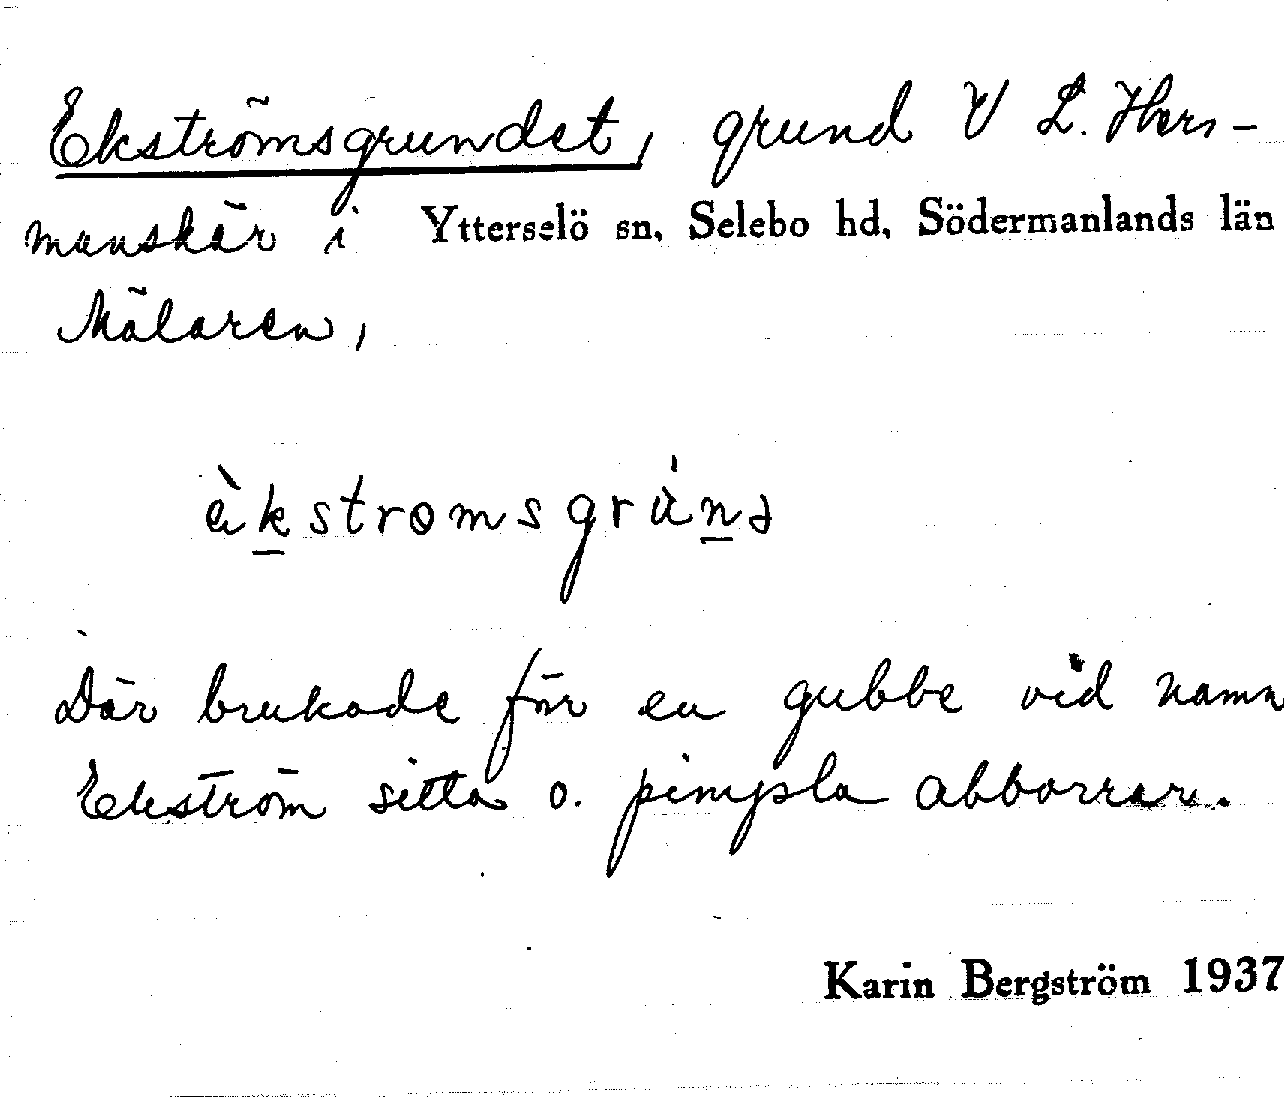 Ekströmsgrundet, grund V L. Hers-
manskär i Ytterselö sn, Selebo hd, Södermanlands län
Mälaren,
èkstromsgrùnd
Där brukade för en gubbe vid namn
Ekström sitta o. pimpla abborrar.
Karin Bergström 1937